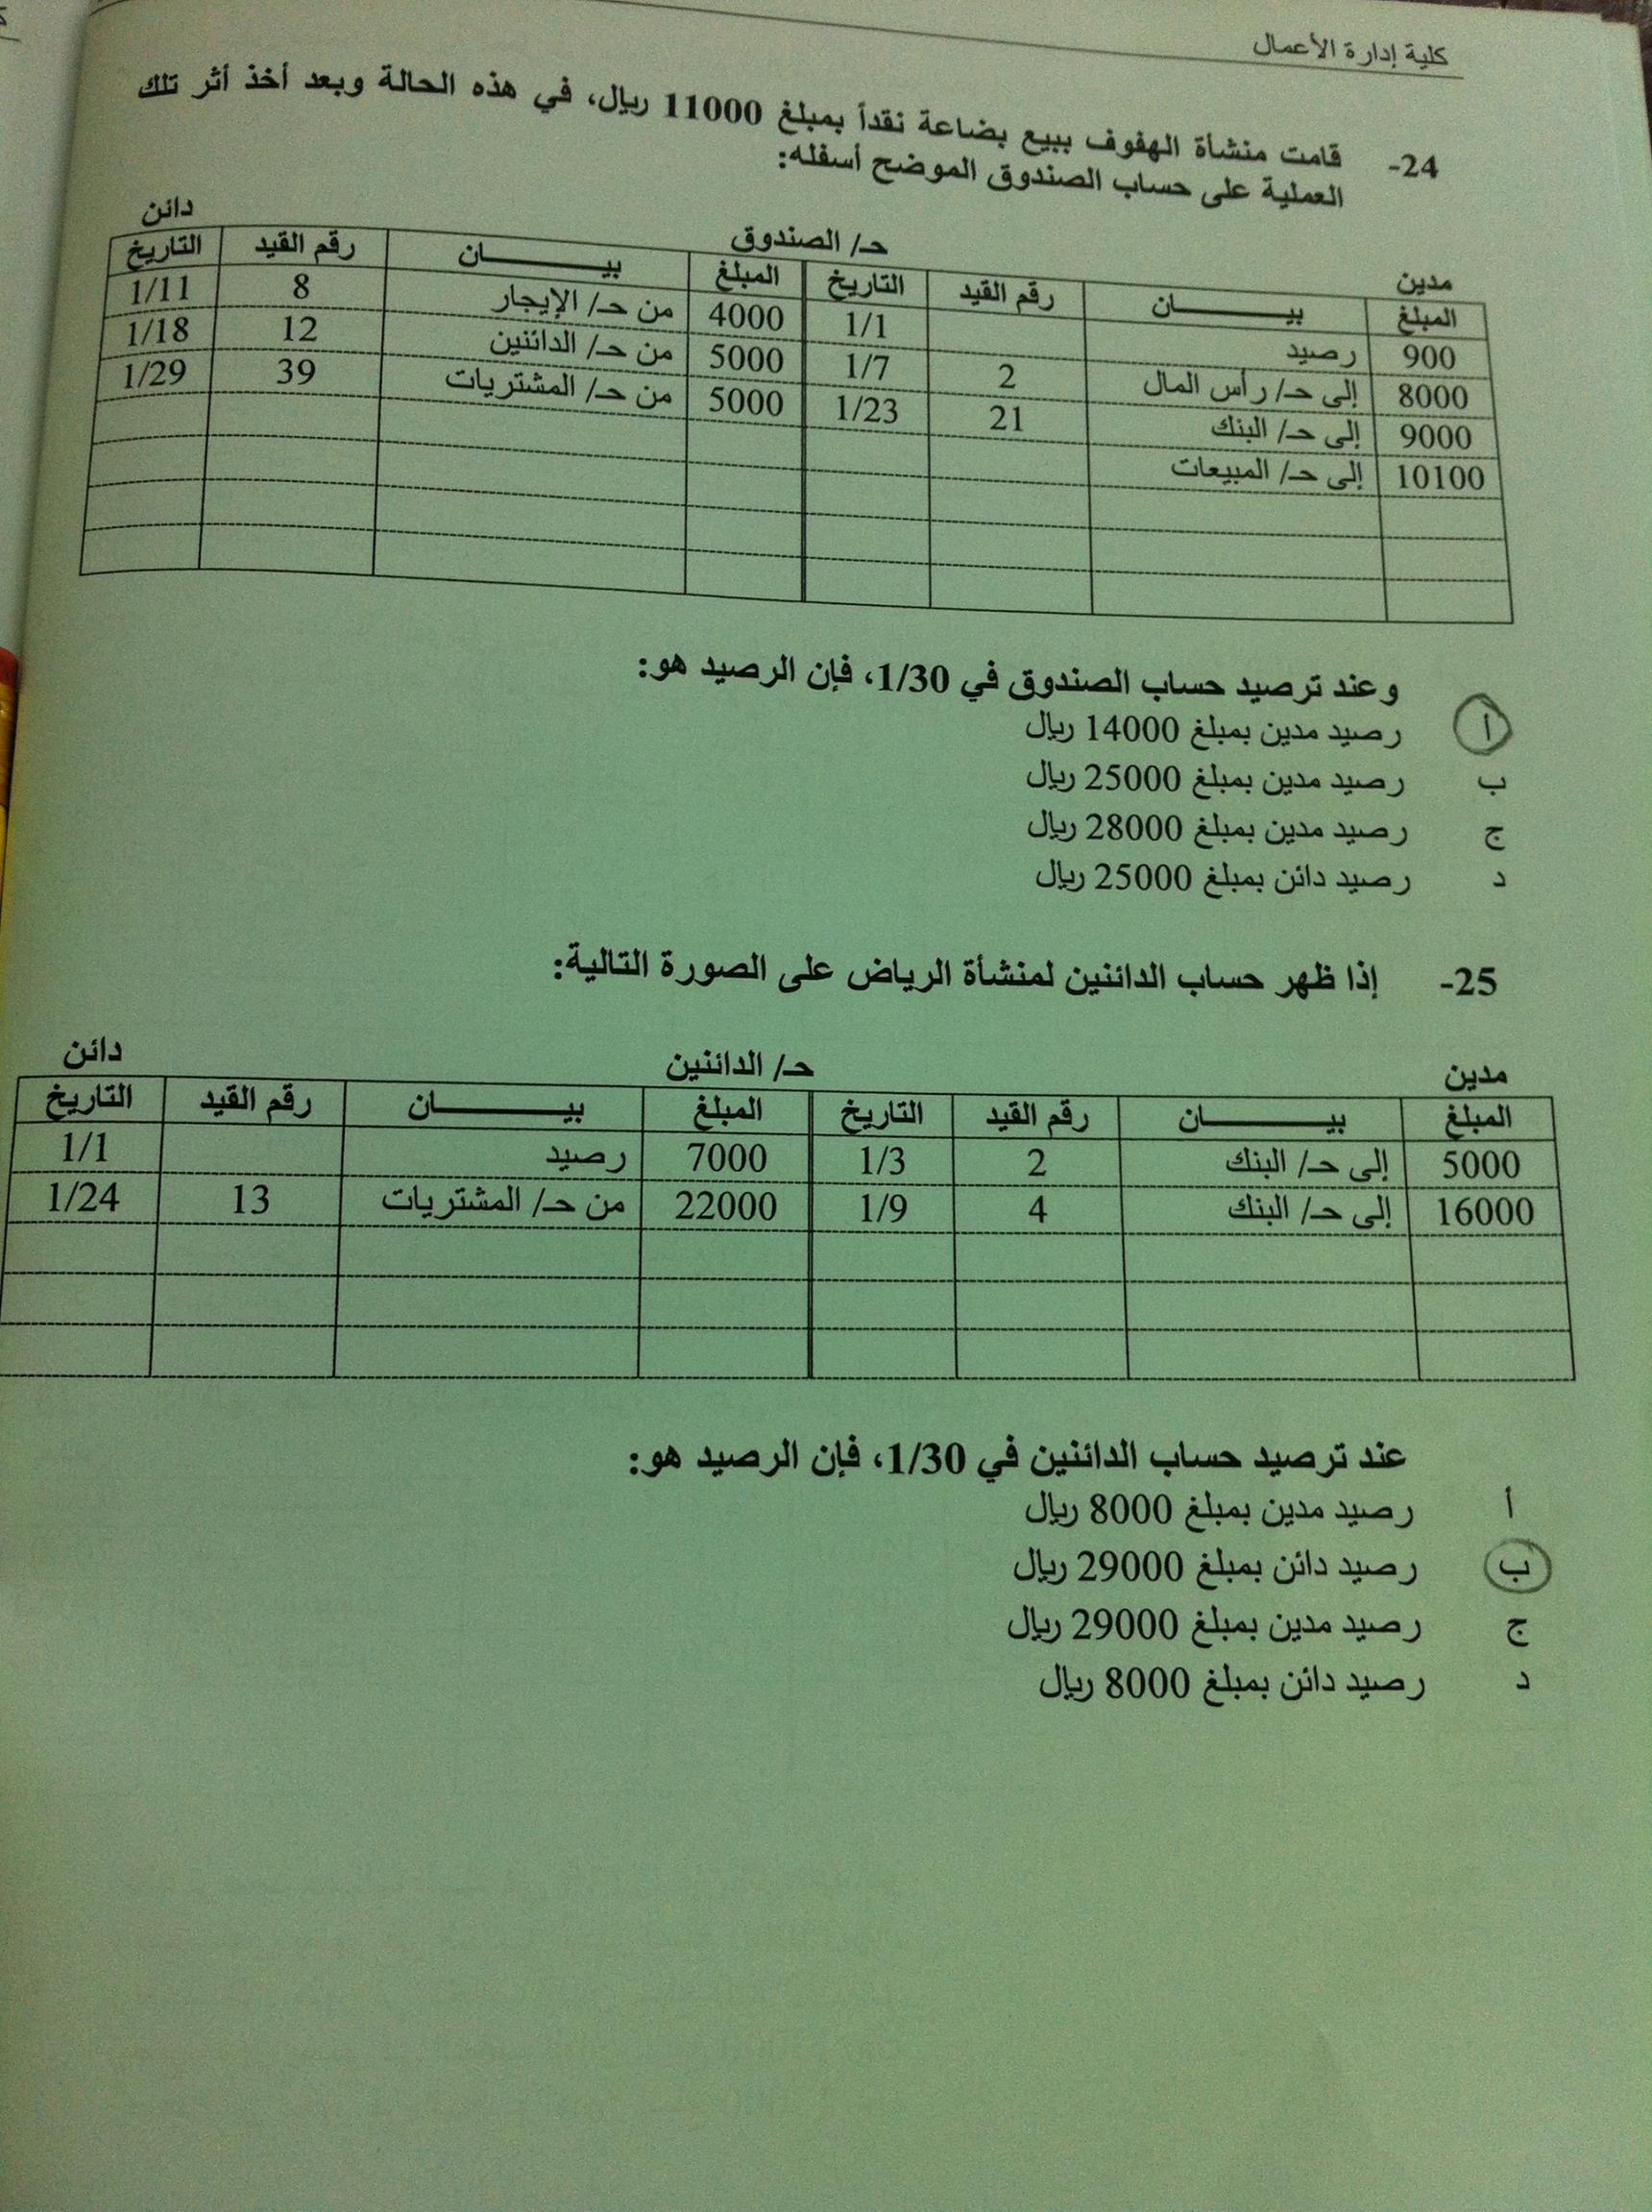 كلية إدارة الأعمال
24- قامت منشأة الهفوف ببيع بضاعة نقداً بمبلغ 11000 ريال، في هذه الحالة وبعد أخذ أثر تلك
العملية على حساب الصندوق الموضح أسفله:
مدين حـ/ الصندوق دائن
المبلغ بيــــــان رقم القيد التاريخ المبلغ بيــــــان رقم القيد التاريخ
900 رصيد 1/1 4000 من حـ/ الإيجار 8 1/11
8000 إلى حـ/ رأس المال 2 1/7 5000 من حـ/ الدائنين 12 1/18
9000 إلى حـ/ البنك 21 1/23 5000 من حـ/ المشتريات 39 1/29
10100 إلى حـ/ المبيعات
وعند ترصيد حساب الصندوق في 1/30، فإن الرصيد هو:
أ رصيد مدين بمبلغ 14000 ريال
ب رصيد مدين بمبلغ 25000 ريال
ج رصيد مدين بمبلغ 28000 ريال
د رصيد دائن بمبلغ 25000 ريال
25- إذا ظهر حساب الدائنين لمنشأة الرياض على الصورة التالية:
مدين حـ/ الدائنين دائن
المبلغ بيــــــان رقم القيد التاريخ المبلغ بيــــــان رقم القيد التاريخ
5000 إلى حـ/ البنك 2 1/3 7000 رصيد 1/1
16000 إلى حـ/ البنك 4 1/9 22000 من حـ/ المشتريات 13 1/24
عند ترصيد حساب الدائنين في 1/30، فإن الرصيد هو:
أ رصيد مدين بمبلغ 8000 ريال
ب رصيد دائن بمبلغ 29000 ريال
ج رصيد مدين بمبلغ 29000 ريال
د رصيد دائن بمبلغ 8000 ريال